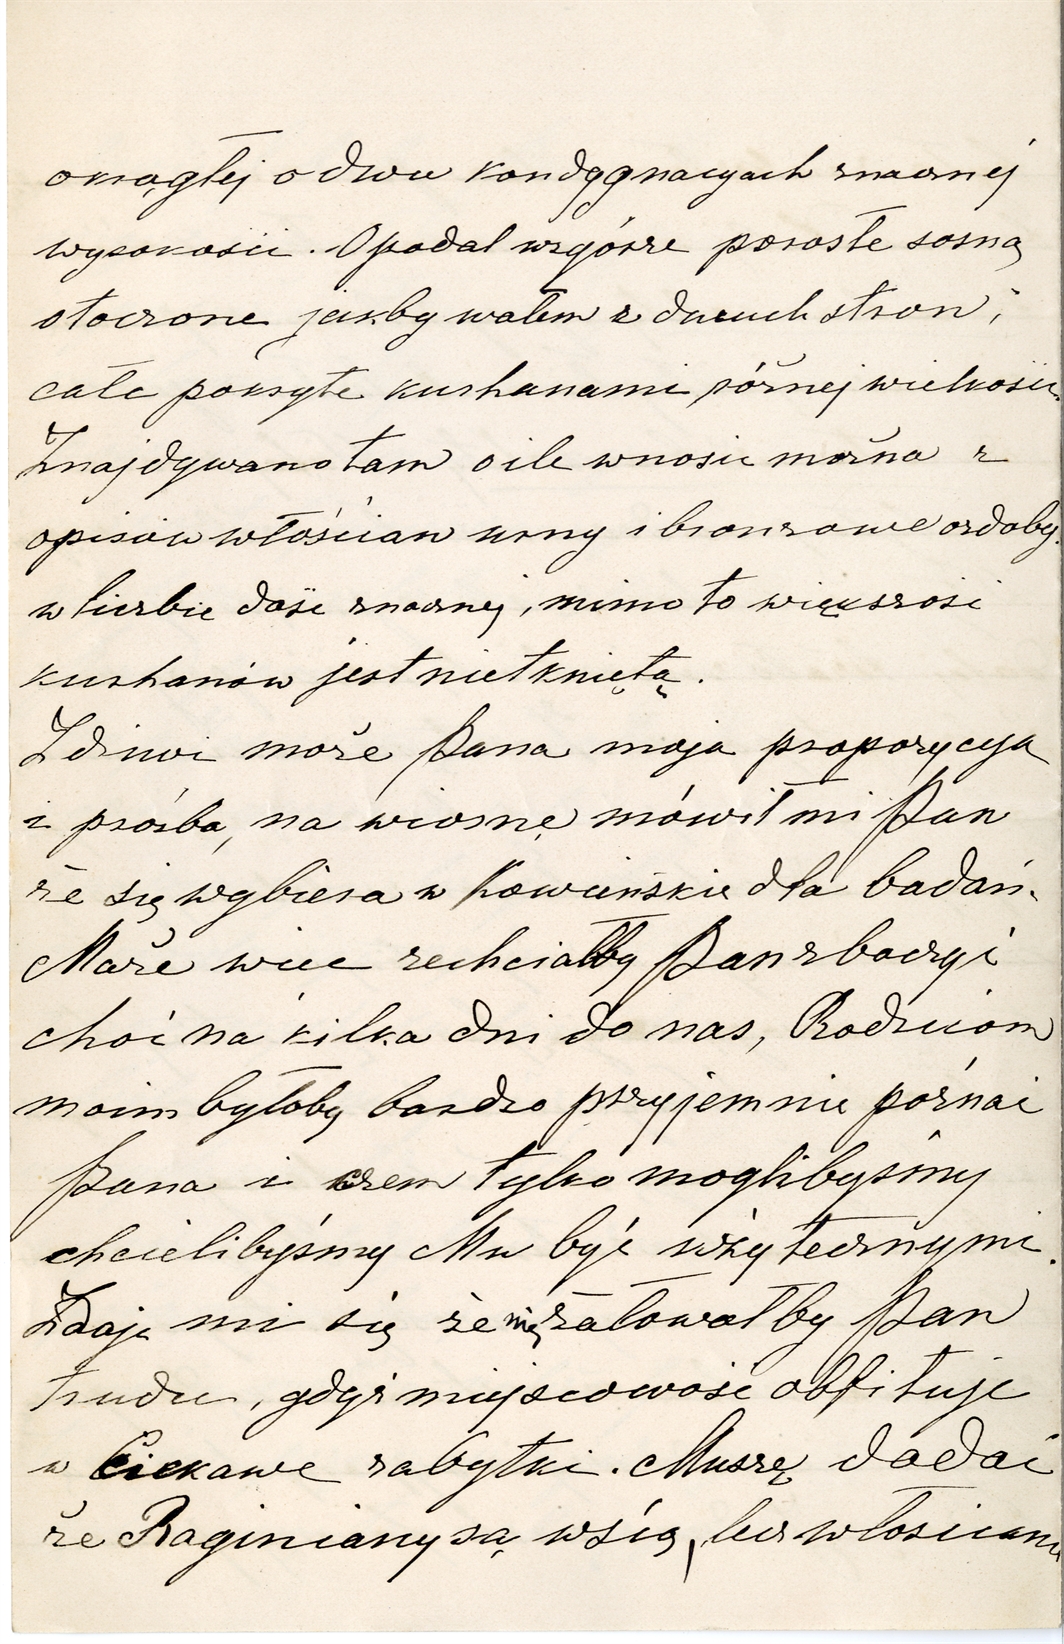 okrągłej o dwu kondygnacyach znacznej
wysokości. Opodal wzgórze porosłe sosną
otoczone jakby wałem z dwuch stron i
całe pokryte kurhanami różnej wielkości.
Znajdywano tam o ile wnosić można z
opisów włościan urny i bronzowe ozdoby
w liczbie dość znacznej, mimo to większość
kurhanów jest nietkniętą.
Zdziwi może Pana moja propozycya
i prośba, na wiosnę mówił mi Pan
że się wybiera w Kowieńskie dla badań.
Może więc zechciałby Pan zboczyć
choć na kilka dni do nas, Rodzicom
moim byłoby bardzo przyjemnie poznać
Pana i czem tylko moglibyśmy
chcielibyśmy Mu być użytecznymi.
Zdaje mi się że nie żałowałby Pan
trudu, gdyż miejscowość obfituje
w ciekawe zabytki. Muszę dodać
że Raginiany są wsią, lecz włościanie